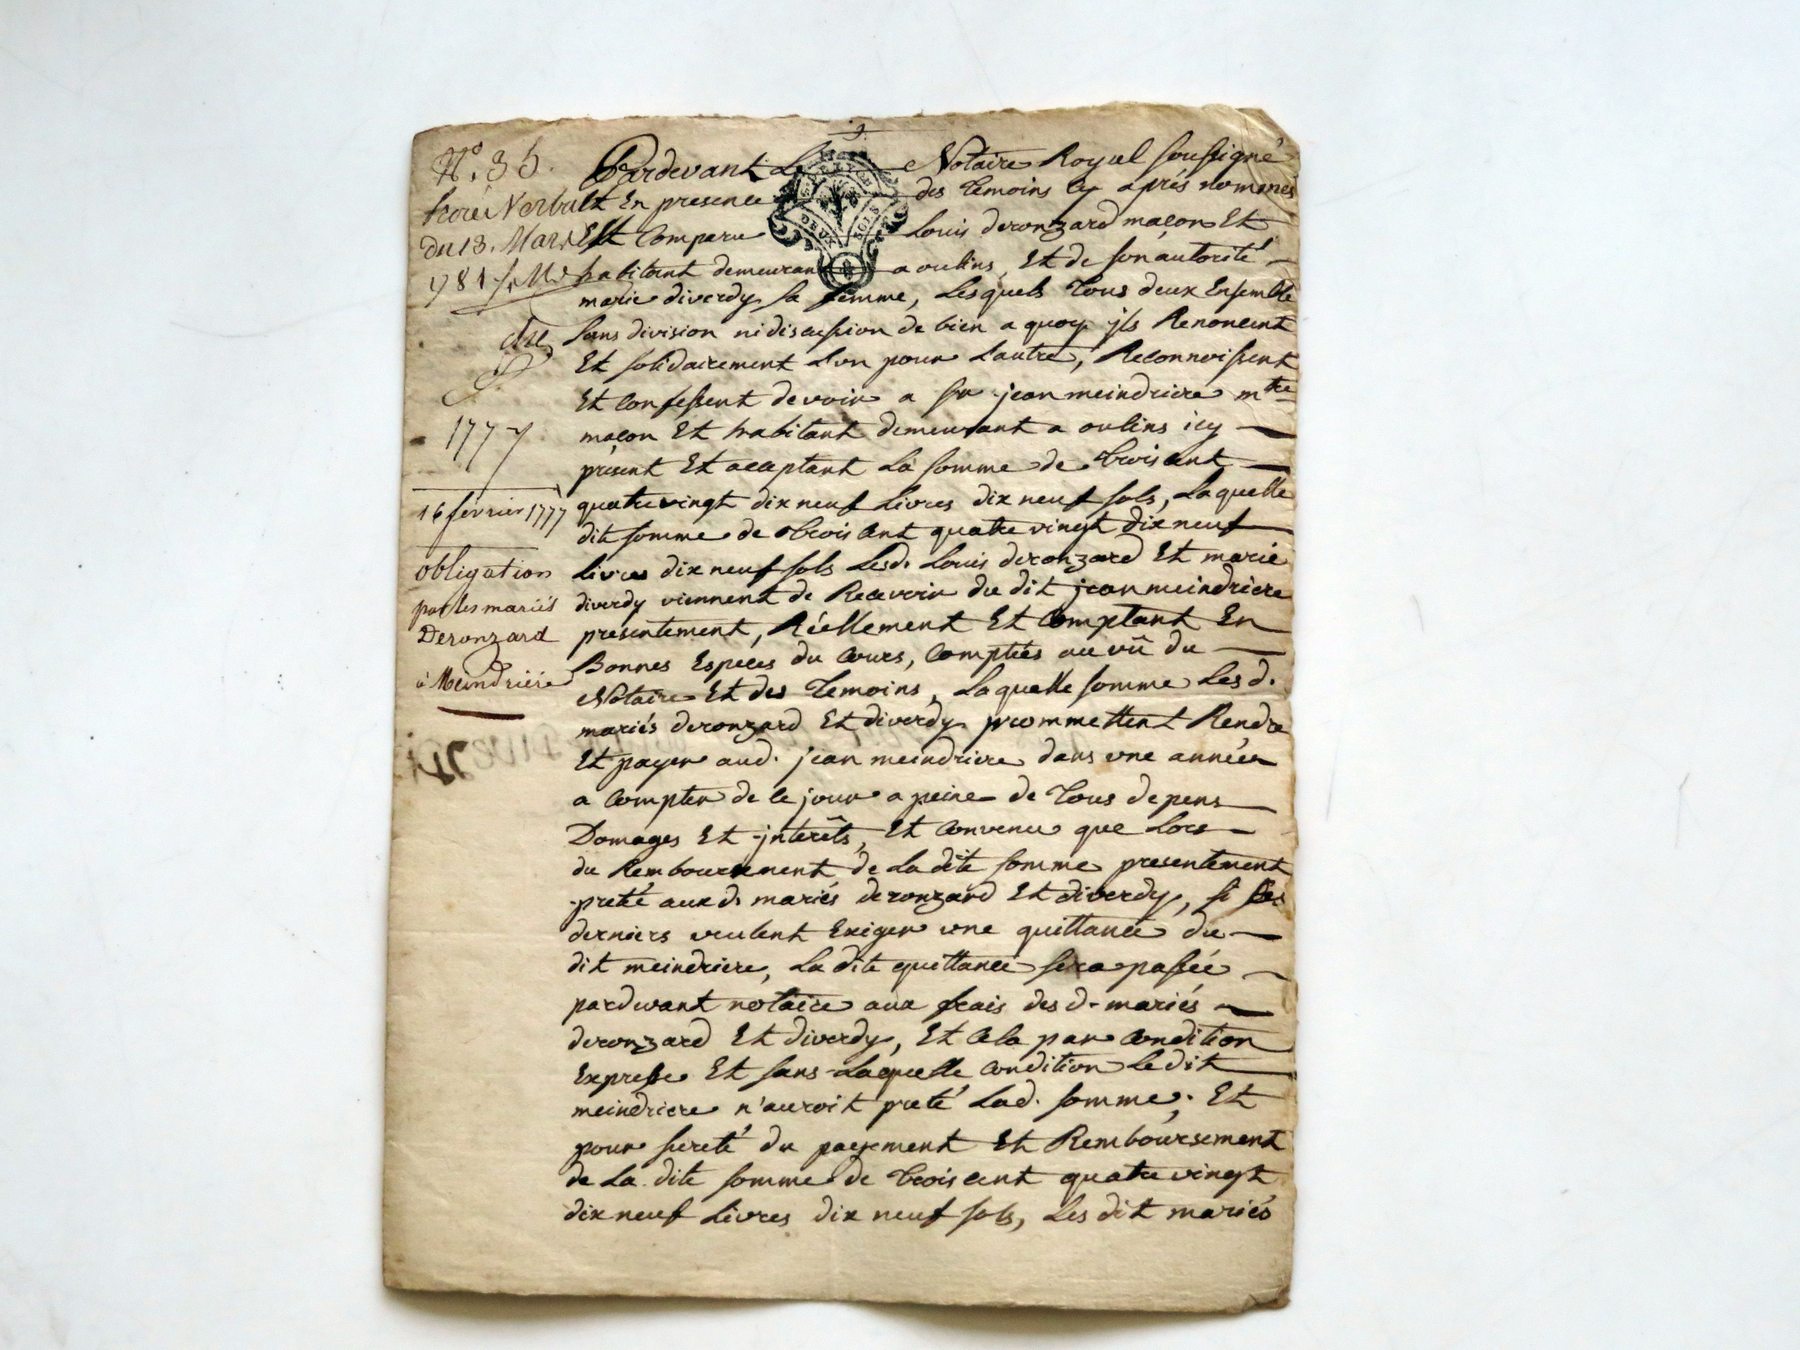 N.° 35.
Verbal
du 13. Mars
1781
1777
16 février 1777
obligation
par les mariés
Deronzard
à Meindrière
G. DE LYON
DEUX SOLS
Pardevant Le Notaire Royal soussigné
Et En presence des temoins cy aprés nommés
Est Comparu Louis deronzard maçon Et
habitant demeurant a oulins, Et de son autorité
marie diverdy sa femme, Lesquels tous deux Ensemble
sans division ni discussion de bien a quoy jls Renoncent
Et solidairement L'un pour Lautre, Reconnoissent
Et Confessent devoir a sr jean meindriere mtre
maçon Et habitant demeurant a oulins icy
présent Et aceptant La somme de trois cent
quatre vingt dix neuf Livres dix neuf sols, Laquelle
dit somme de trois cent quatre vingt dix neuf
Livres dix neuf sols Lesd. Louis deronzard Et marie
diverdy viennent de Recevoir du dit jean meindriere
presentement, Réellement Et Comptant En
Bonnes Especes du Cours, Comptées au vû du
Notaire Et des temoins, Laquelle somme Les d.
mariés deronzard Et diverdy prommettent Rendre
Et payer aud. jean meindriere dans une année
a Compter de ce jour a peine de tous depens
Domages Et jnterêts, Et Convenu que Lors
du Remboursement de La dite somme presentement
preté aux d. mariés deronzard Et diverdy, si ses
derniers veulent Exiger une quittance du
dit meindriere, La dite quittance sera passée
pardevant notaire aux frais des d. mariés
deronzard Et diverdy, Et Cela par Condition
Expresse Et sans Laquelle Condition Ledit
meindriere n'auroit preté Lad. somme; Et
pour sureté du payement Et Remboursement
de La dite somme de trois cent quatre vingt
dix neuf Livres dix neuf sols, Les dit mariés